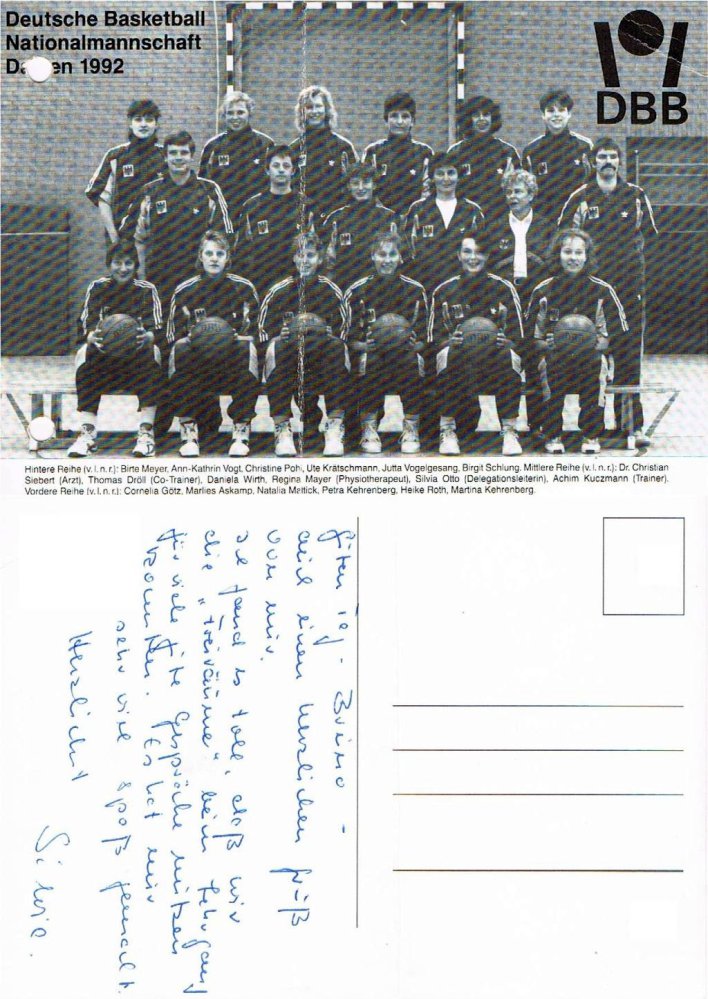 Deutsche Basketball
Nationalmannschaft
Da en 1992
DBB
Hintere Reihe (v. l. n. r.): Birte Meyer, Ann-Kathrin Vogt, Christine Pohl, Ute Krätschmann, Jutta Vogelgesang, Birgit Schlung. Mittlere Reihe (v. l. n. r.): Dr. Christian
Siebert (Arzt), Thomas Dröll (Co-Trainer), Daniela Wirth, Regina Mayer (Physiotherapeut), Silvia Otto (Delegationsleiterin), Achim Kuczmann (Trainer).
Vordere Reihe (v. l. n. r.): Cornelia Götz, Marlies Askamp, Natalia Mattick, Petra Kehrenberg, Heike Roth, Martina Kehrenberg.
Guten Tag - Bruno -
und einen herzlichen Gruß
von mir.
Ich fand es toll, daß wir
die "Freiräume" beim Lehrgang
für viele gute Gespräche nützen
konnten. Es hat mir
sehr viel Spaß gemacht.
Herzlichst
Silvia.